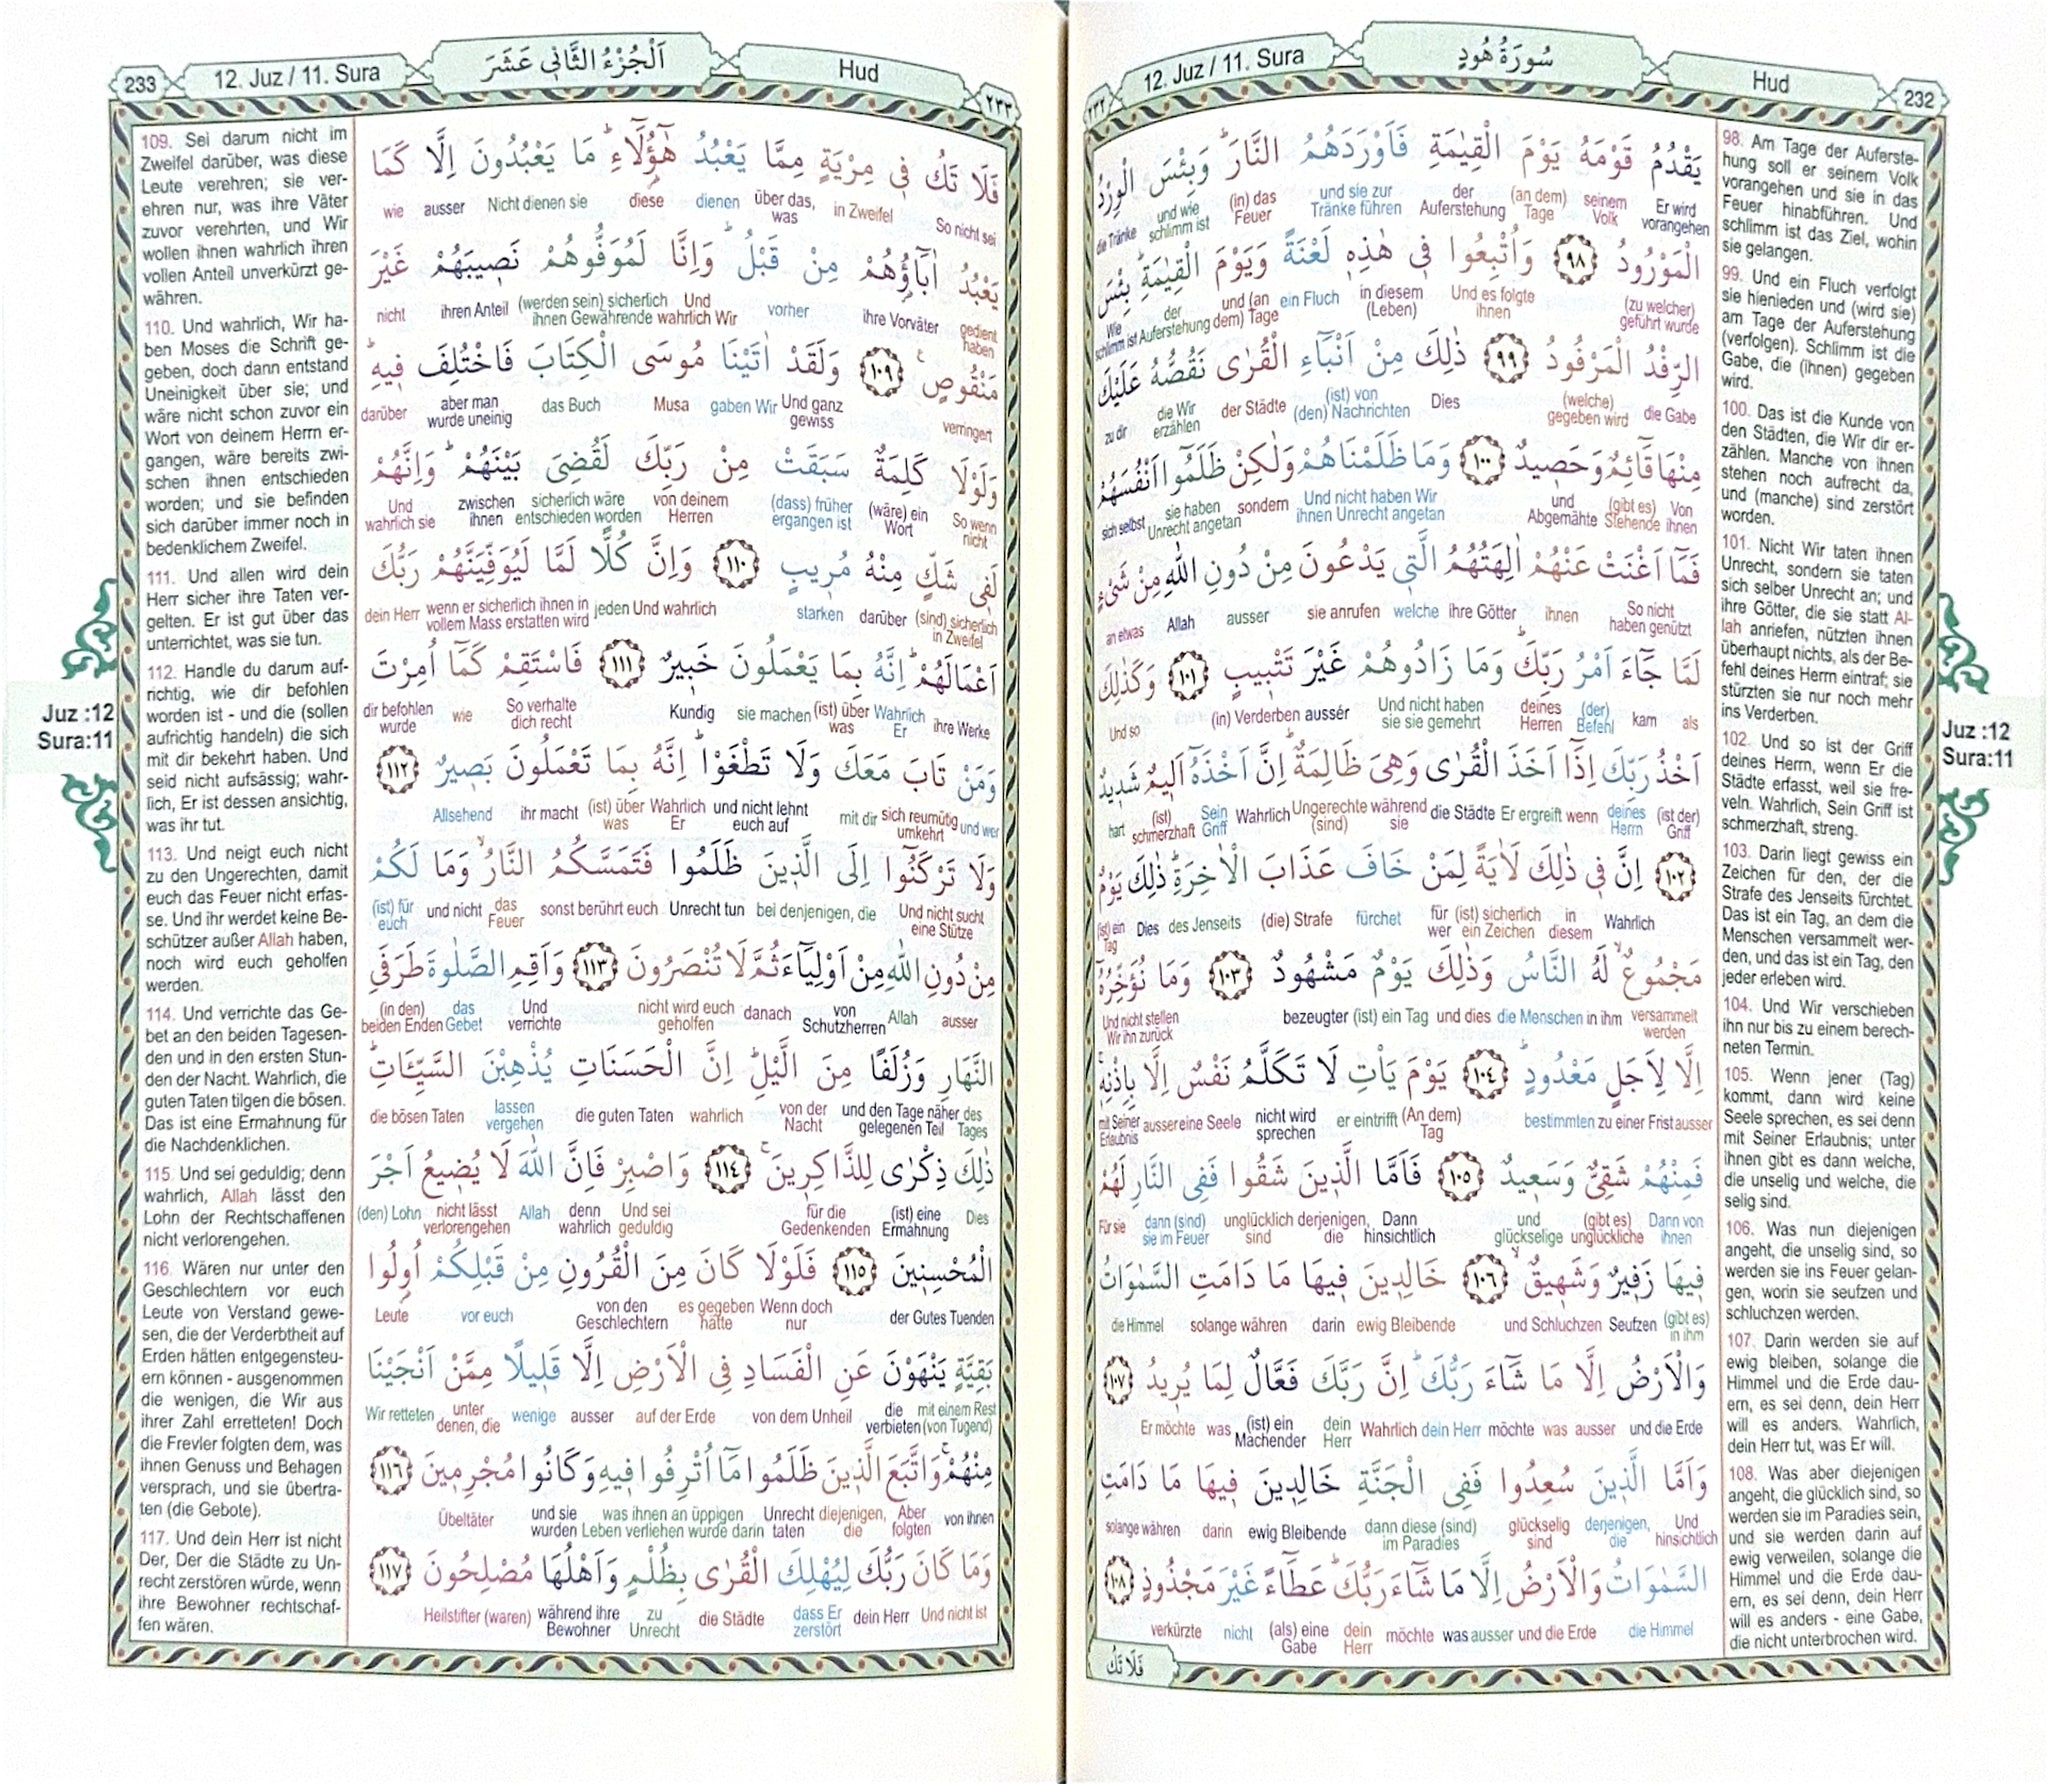 12. Juz / 11. Sura
سُورَةُ هُودٍ
Hud
232
٢٣٢
يَقْدُمُ قَوْمَهُ يَوْمَ الْقِيٰمَةِ فَاَوْرَدَهُمُ النَّارَ وَبِئْسَ الْوِرْدُ
Er wird vorangehen seinem Volk (an dem) Tage der Auferstehung und sie zur Tränke führen (in) das Feuer und wie schlimm ist die Tränke
الْمَوْرُودُ ٩٨ وَاُتْبِعُوا فِى هٰذِهِ لَعْنَةً وَيَوْمَ الْقِيٰمَةِ بِئْسَ
(zu welcher) geführt wurde Und es folgte ihnen in diesem (Leben) ein Fluch und (an dem) Tage der Auferstehung Wie schlimm ist
الرِّفْدُ الْمَرْفُودُ ٩٩ ذٰلِكَ مِنْ اَنْبَآءِ الْقُرٰى نَقُصُّهُ عَلَيْكَ
die Gabe (welche) gegeben wird Dies (ist) von (den) Nachrichten der Städte die Wir erzählen zu dir
مِنْهَا قَآئِمٌ وَحَصِيدٌ ١٠٠ وَمَا ظَلَمْنَاهُمْ وَلٰكِنْ ظَلَمُوا اَنْفُسَهُمْ
Von ihnen (gibt es) Stehende und Abgemähte Und nicht haben Wir ihnen Unrecht angetan sondern sie haben Unrecht angetan sich selbst
فَمَا اَغْنَتْ عَنْهُمْ اٰلِهَتُهُمُ الَّتِى يَدْعُونَ مِنْ دُونِ اللّٰهِ مِنْ شَىْءٍ
So nicht haben genützt ihnen ihre Götter welche sie anrufen ausser Allah an etwas
لَمَّا جَآءَ اَمْرُ رَبِّكَ وَمَا زَادُوهُمْ غَيْرَ تَتْبِيبٍ ١٠١ وَكَذٰلِكَ
als kam (der) Befehl deines Herren Und nicht haben sie sie gemehrt aussér (in) Verderben Und so
اَخْذُ رَبِّكَ اِذَا اَخَذَ الْقُرٰى وَهِىَ ظَالِمَةٌ اِنَّ اَخْذَهُ اَلِيمٌ شَدِيدٌ
(ist der) Griff deines Herrn wenn Er ergreift die Städte während sie Ungerechte (sind) Wahrlich Sein Griff (ist) schmerzhaft hart
١٠٢ اِنَّ فِى ذٰلِكَ لَاٰيَةً لِمَنْ خَافَ عَذَابَ الْاٰخِرَةِ ذٰلِكَ يَوْمٌ
Wahrlich in diesem (ist) sicherlich ein Zeichen für wer fürchet (die) Strafe des Jenseits Dies (ist) ein Tag
مَجْمُوعٌ لَهُ النَّاسُ وَذٰلِكَ يَوْمٌ مَشْهُودٌ ١٠٣ وَمَا نُؤَخِّرُهُ
versammelt werden in ihm die Menschen und dies (ist) ein Tag bezeugter Und nicht stellen Wir ihn zurück
اِلَّا لِاَجَلٍ مَعْدُودٍ ١٠٤ يَوْمَ يَاْتِ لَا تَكَلَّمُ نَفْسٌ اِلَّا بِاِذْنِهِ
ausser zu einer Frist bestimmten (An dem) Tag er eintrifft nicht wird sprechen eine Seele ausser mit Seiner Erlaubnis
فَمِنْهُمْ شَقِىٌّ وَسَعِيدٌ ١٠٥ فَاَمَّا الَّذِينَ شَقُوا فَفِى النَّارِ لَهُمْ
Dann von ihnen (gibt es) unglückliche und glückselige Dann hinsichtlich derjenigen, die unglücklich sind dann (sind) sie im Feuer Für sie
فِيهَا زَفِيرٌ وَشَهِيقٌ ١٠٦ خَالِدِينَ فِيهَا مَا دَامَتِ السَّمٰوَاتُ
(gibt es) in ihm Seufzen und Schluchzen ewig Bleibende darin solange währen die Himmel
وَالْاَرْضُ اِلَّا مَا شَآءَ رَبُّكَ اِنَّ رَبَّكَ فَعَّالٌ لِمَا يُرِيدُ ١٠٧
und die Erde ausser was möchte dein Herr Wahrlich dein Herr (ist) ein Machender was Er möchte
وَاَمَّا الَّذِينَ سُعِدُوا فَفِى الْجَنَّةِ خَالِدِينَ فِيهَا مَا دَامَتِ
Und hinsichtlich derjenigen, die glückselig sind dann diese (sind) im Paradies ewig Bleibende darin solange währen
السَّمٰوَاتُ وَالْاَرْضُ اِلَّا مَا شَآءَ رَبُّكَ عَطَآءً غَيْرَ مَجْذُوذٍ ١٠٨
die Himmel und die Erde ausser was möchte dein Herr (als) eine Gabe nicht verkürzte
فَلَا تَكُ
98. Am Tage der Auferste-
hung soll er seinem Volk
vorangehen und sie in das
Feuer hinabführen. Und
schlimm ist das Ziel, wohin
sie gelangen.
99. Und ein Fluch verfolgt
sie hienieden und (wird sie)
am Tage der Auferstehung
(verfolgen). Schlimm ist die
Gabe, die (ihnen) gegeben
wird.
100. Das ist die Kunde von
den Städten, die Wir dir er-
zählen. Manche von ihnen
stehen noch aufrecht da,
und (manche) sind zerstört
worden.
101. Nicht Wir taten ihnen
Unrecht, sondern sie taten
sich selber Unrecht an; und
ihre Götter, die sie statt Al-
lah anriefen, nützten ihnen
überhaupt nichts, als der Be-
fehl deines Herrn eintraf; sie
stürzten sie nur noch mehr
ins Verderben.
102. Und so ist der Griff
deines Herrn, wenn Er die
Städte erfasst, weil sie fre-
veln. Wahrlich, Sein Griff ist
schmerzhaft, streng.
103. Darin liegt gewiss ein
Zeichen für den, der die
Strafe des Jenseits fürchtet.
Das ist ein Tag, an dem die
Menschen versammelt wer-
den, und das ist ein Tag, den
jeder erleben wird.
104. Und Wir verschieben
ihn nur bis zu einem berech-
neten Termin.
105. Wenn jener (Tag)
kommt, dann wird keine
Seele sprechen, es sei denn
mit Seiner Erlaubnis; unter
ihnen gibt es dann welche,
die unselig und welche, die
selig sind.
106. Was nun diejenigen
angeht, die unselig sind, so
werden sie ins Feuer gelan-
gen, worin sie seufzen und
schluchzen werden.
107. Darin werden sie auf
ewig bleiben, solange die
Himmel und die Erde dau-
ern, es sei denn, dein Herr
will es anders. Wahrlich,
dein Herr tut, was Er will.
108. Was aber diejenigen
angeht, die glücklich sind, so
werden sie im Paradies sein,
und sie werden darin auf
ewig verweilen, solange die
Himmel und die Erde dau-
ern, es sei denn, dein Herr
will es anders - eine Gabe,
die nicht unterbrochen wird.
Juz :12
Sura:11
233
12. Juz / 11. Sura
اَلْجُزْءُ الثَّانِى عَشَرَ
Hud
٢٣٣
فَلَا تَكُ فِى مِرْيَةٍ مِمَّا يَعْبُدُ هٰٓؤُلَآءِ مَا يَعْبُدُونَ اِلَّا كَمَا
So nicht sei in Zweifel über das, was dienen diese Nicht dienen sie ausser wie
يَعْبُدُ اٰبَآؤُهُمْ مِنْ قَبْلُ وَاِنَّا لَمُوَفُّوهُمْ نَصِيبَهُمْ غَيْرَ
gedient haben ihre Vorväter vorher Und wahrlich Wir (werden sein) sicherlich ihnen Gewährende ihren Anteil nicht
مَنْقُوصٍ ١٠٩ وَلَقَدْ اٰتَيْنَا مُوسَى الْكِتَابَ فَاخْتُلِفَ فِيهِ
verringert Und ganz gewiss gaben Wir Musa das Buch aber man wurde uneinig darüber
وَلَوْلَا كَلِمَةٌ سَبَقَتْ مِنْ رَبِّكَ لَقُضِىَ بَيْنَهُمْ وَاِنَّهُمْ
So wenn nicht (wäre) ein Wort (dass) früher ergangen ist von deinem Herren sicherlich wäre entschieden worden zwischen ihnen Und wahrlich sie
لَفِى شَكٍّ مِنْهُ مُرِيبٍ ١١٠ وَاِنَّ كُلًّا لَمَّا لَيُوَفِّيَنَّهُمْ رَبُّكَ
(sind) sicherlich in Zweifel darüber starken Und wahrlich jeden wenn er sicherlich ihnen in vollem Mass erstatten wird dein Herr
اَعْمَالَهُمْ اِنَّهُ بِمَا يَعْمَلُونَ خَبِيرٌ ١١١ فَاسْتَقِمْ كَمَا اُمِرْتَ
ihre Werke Wahrlich Er (ist) über was sie machen Kundig So verhalte dich recht wie dir befohlen wurde
وَمَنْ تَابَ مَعَكَ وَلَا تَطْغَوْا اِنَّهُ بِمَا تَعْمَلُونَ بَصِيرٌ ١١٢
und wer sich reumütig umkehrt mit dir und nicht lehnt euch auf Wahrlich Er (ist) über was ihr macht Allsehend
وَلَا تَرْكَنُوا اِلَى الَّذِينَ ظَلَمُوا فَتَمَسَّكُمُ النَّارُ وَمَا لَكُمْ
Und nicht sucht eine Stütze bei denjenigen, die Unrecht tun sonst berührt euch das Feuer und nicht (ist) für euch
مِنْ دُونِ اللّٰهِ مِنْ اَوْلِيَآءَ ثُمَّ لَا تُنْصَرُونَ ١١٣ وَاَقِمِ الصَّلٰوةَ طَرَفَىِ
ausser Allah von Schutzherren danach nicht wird euch geholfen Und verrichte das Gebet (in den) beiden Enden
النَّهَارِ وَزُلَفًا مِنَ الَّيْلِ اِنَّ الْحَسَنَاتِ يُذْهِبْنَ السَّيِّـَٔاتِ
des Tages und den Tage näher gelegenen Teil von der Nacht wahrlich die guten Taten lassen vergehen die bösen Taten
ذٰلِكَ ذِكْرٰى لِلذَّاكِرِينَ ١١٤ وَاصْبِرْ فَاِنَّ اللّٰهَ لَا يُضِيعُ اَجْرَ
Dies (ist) eine Ermahnung für die Gedenkenden Und sei geduldig denn wahrlich Allah nicht lässt verlorengehen (den) Lohn
الْمُحْسِنِينَ ١١٥ فَلَوْلَا كَانَ مِنَ الْقُرُونِ مِنْ قَبْلِكُمْ اُولُوا
der Gutes Tuenden Wenn doch nur es gegeben hätte von den Geschlechtern vor euch Leute
بَقِيَّةٍ يَنْهَوْنَ عَنِ الْفَسَادِ فِى الْاَرْضِ اِلَّا قَلِيلًا مِمَّنْ اَنْجَيْنَا
mit einem Rest (von Tugend) die verbieten von dem Unheil auf der Erde ausser wenige unter denen, die Wir retteten
مِنْهُمْ وَاتَّبَعَ الَّذِينَ ظَلَمُوا مَا اُتْرِفُوا فِيهِ وَكَانُوا مُجْرِمِينَ ١١٦
von ihnen Aber folgten diejenigen, die Unrecht taten was ihnen an üppigen Leben verliehen wurde darin und sie wurden Übeltäter
وَمَا كَانَ رَبُّكَ لِيُهْلِكَ الْقُرٰى بِظُلْمٍ وَاَهْلُهَا مُصْلِحُونَ ١١٧
Und nicht ist dein Herr dass Er zerstört die Städte zu Unrecht während ihre Bewohner Heilstifter (waren)
109. Sei darum nicht im
Zweifel darüber, was diese
Leute verehren; sie ver-
ehren nur, was ihre Väter
zuvor verehrten, und Wir
wollen ihnen wahrlich ihren
vollen Anteil unverkürzt ge-
währen.
110. Und wahrlich, Wir ha-
ben Moses die Schrift ge-
geben, doch dann entstand
Uneinigkeit über sie; und
wäre nicht schon zuvor ein
Wort von deinem Herrn er-
gangen, wäre bereits zwi-
schen ihnen entschieden
worden; und sie befinden
sich darüber immer noch in
bedenklichem Zweifel.
111. Und allen wird dein
Herr sicher ihre Taten ver-
gelten. Er ist gut über das
unterrichtet, was sie tun.
112. Handle du darum auf-
richtig, wie dir befohlen
worden ist - und die (sollen
aufrichtig handeln) die sich
mit dir bekehrt haben. Und
seid nicht aufsässig; wahr-
lich, Er ist dessen ansichtig,
was ihr tut.
113. Und neigt euch nicht
zu den Ungerechten, damit
euch das Feuer nicht erfas-
se. Und ihr werdet keine Be-
schützer außer Allah haben,
noch wird euch geholfen
werden.
114. Und verrichte das Ge-
bet an den beiden Tagesen-
den und in den ersten Stun-
den der Nacht. Wahrlich, die
guten Taten tilgen die bösen.
Das ist eine Ermahnung für
die Nachdenklichen.
115. Und sei geduldig; denn
wahrlich, Allah lässt den
Lohn der Rechtschaffenen
nicht verlorengehen.
116. Wären nur unter den
Geschlechtern vor euch
Leute von Verstand gewe-
sen, die der Verderbtheit auf
Erden hätten entgegensteu-
ern können - ausgenommen
die wenigen, die Wir aus
ihrer Zahl erretteten! Doch
die Frevler folgten dem, was
ihnen Genuss und Behagen
versprach, und sie übertra-
ten (die Gebote).
117. Und dein Herr ist nicht
Der, Der die Städte zu Un-
recht zerstören würde, wenn
ihre Bewohner rechtschaf-
fen wären.
Juz :12
Sura:11